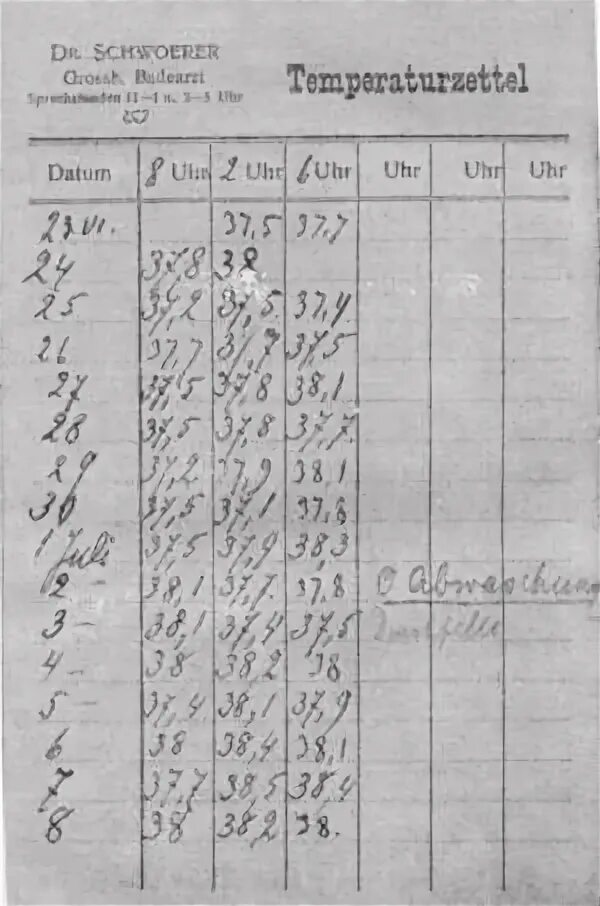 DR. SCHWOERER
Grossh. Badearzt
Sprechstunden 11—1 u. 3—5 Uhr
Temperaturzettel
Datum 8 Uhr 2 Uhr 6 Uhr Uhr Uhr Uhr
23.VI. 37,5 37,7
24 37,8 38
25 37,2 37,5 37,4
26 37,7 37,7 37,5
27 37,5 37,8 38,1
28 37,5 37,8 37,7
29 37,2 37,9 38,1
30 37,5 37,1 37,6
1 Juli 37,5 37,9 38,3
2 - 38,1 37,7 37,8 O Abwaschung
3 - 38,1 37,4 37,5
4 - 38 38,2 38
5 - 37,4 38,1 37,9
6 38 38,4 38,1
7 37,7 38,5 38,4
8 38 38,2 38.